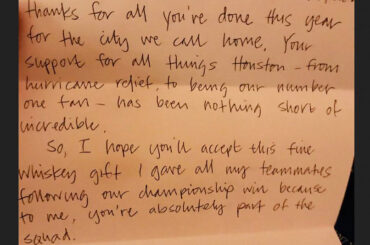 thanks for all you're done this year
for the city we call home. Your
support for all things Houston - from
hurricane relief, to being our number
one fan - has been nothing short of
incredible.
So, I hope you'll accept this fine
whiskey gift I gave all my teammates
following our championship win because
to me, you're absolutely part of the
squad.